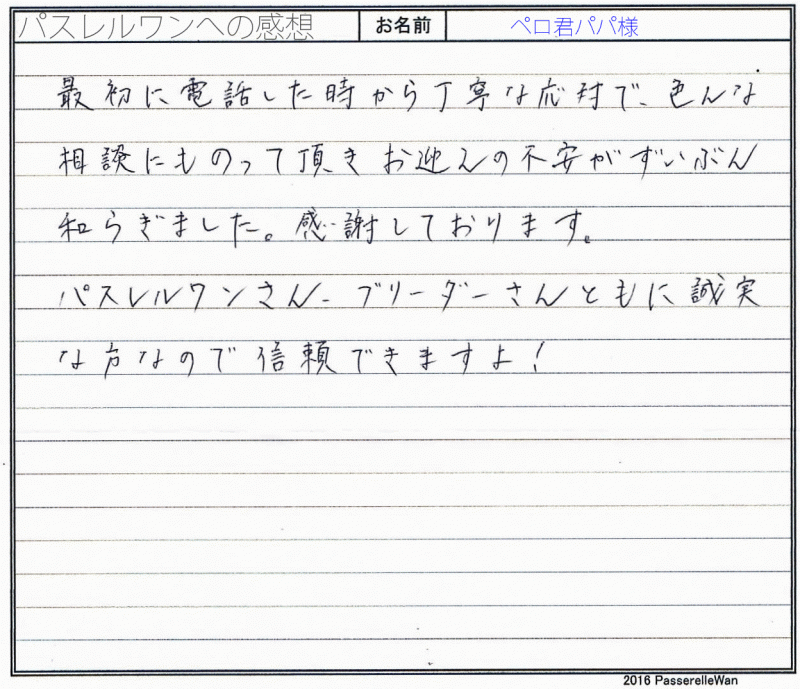 パスレルワンへの感想 お名前 ペロ君パパ様
最初に電話した時から丁寧な応対で、色んな
相談にものって頂きお迎えの不安がずいぶん
和らぎました。感謝しております。
パスレルワンさん、ブリーダーさんともに誠実
な方なので信頼できますよ!
2016 PasserelleWan